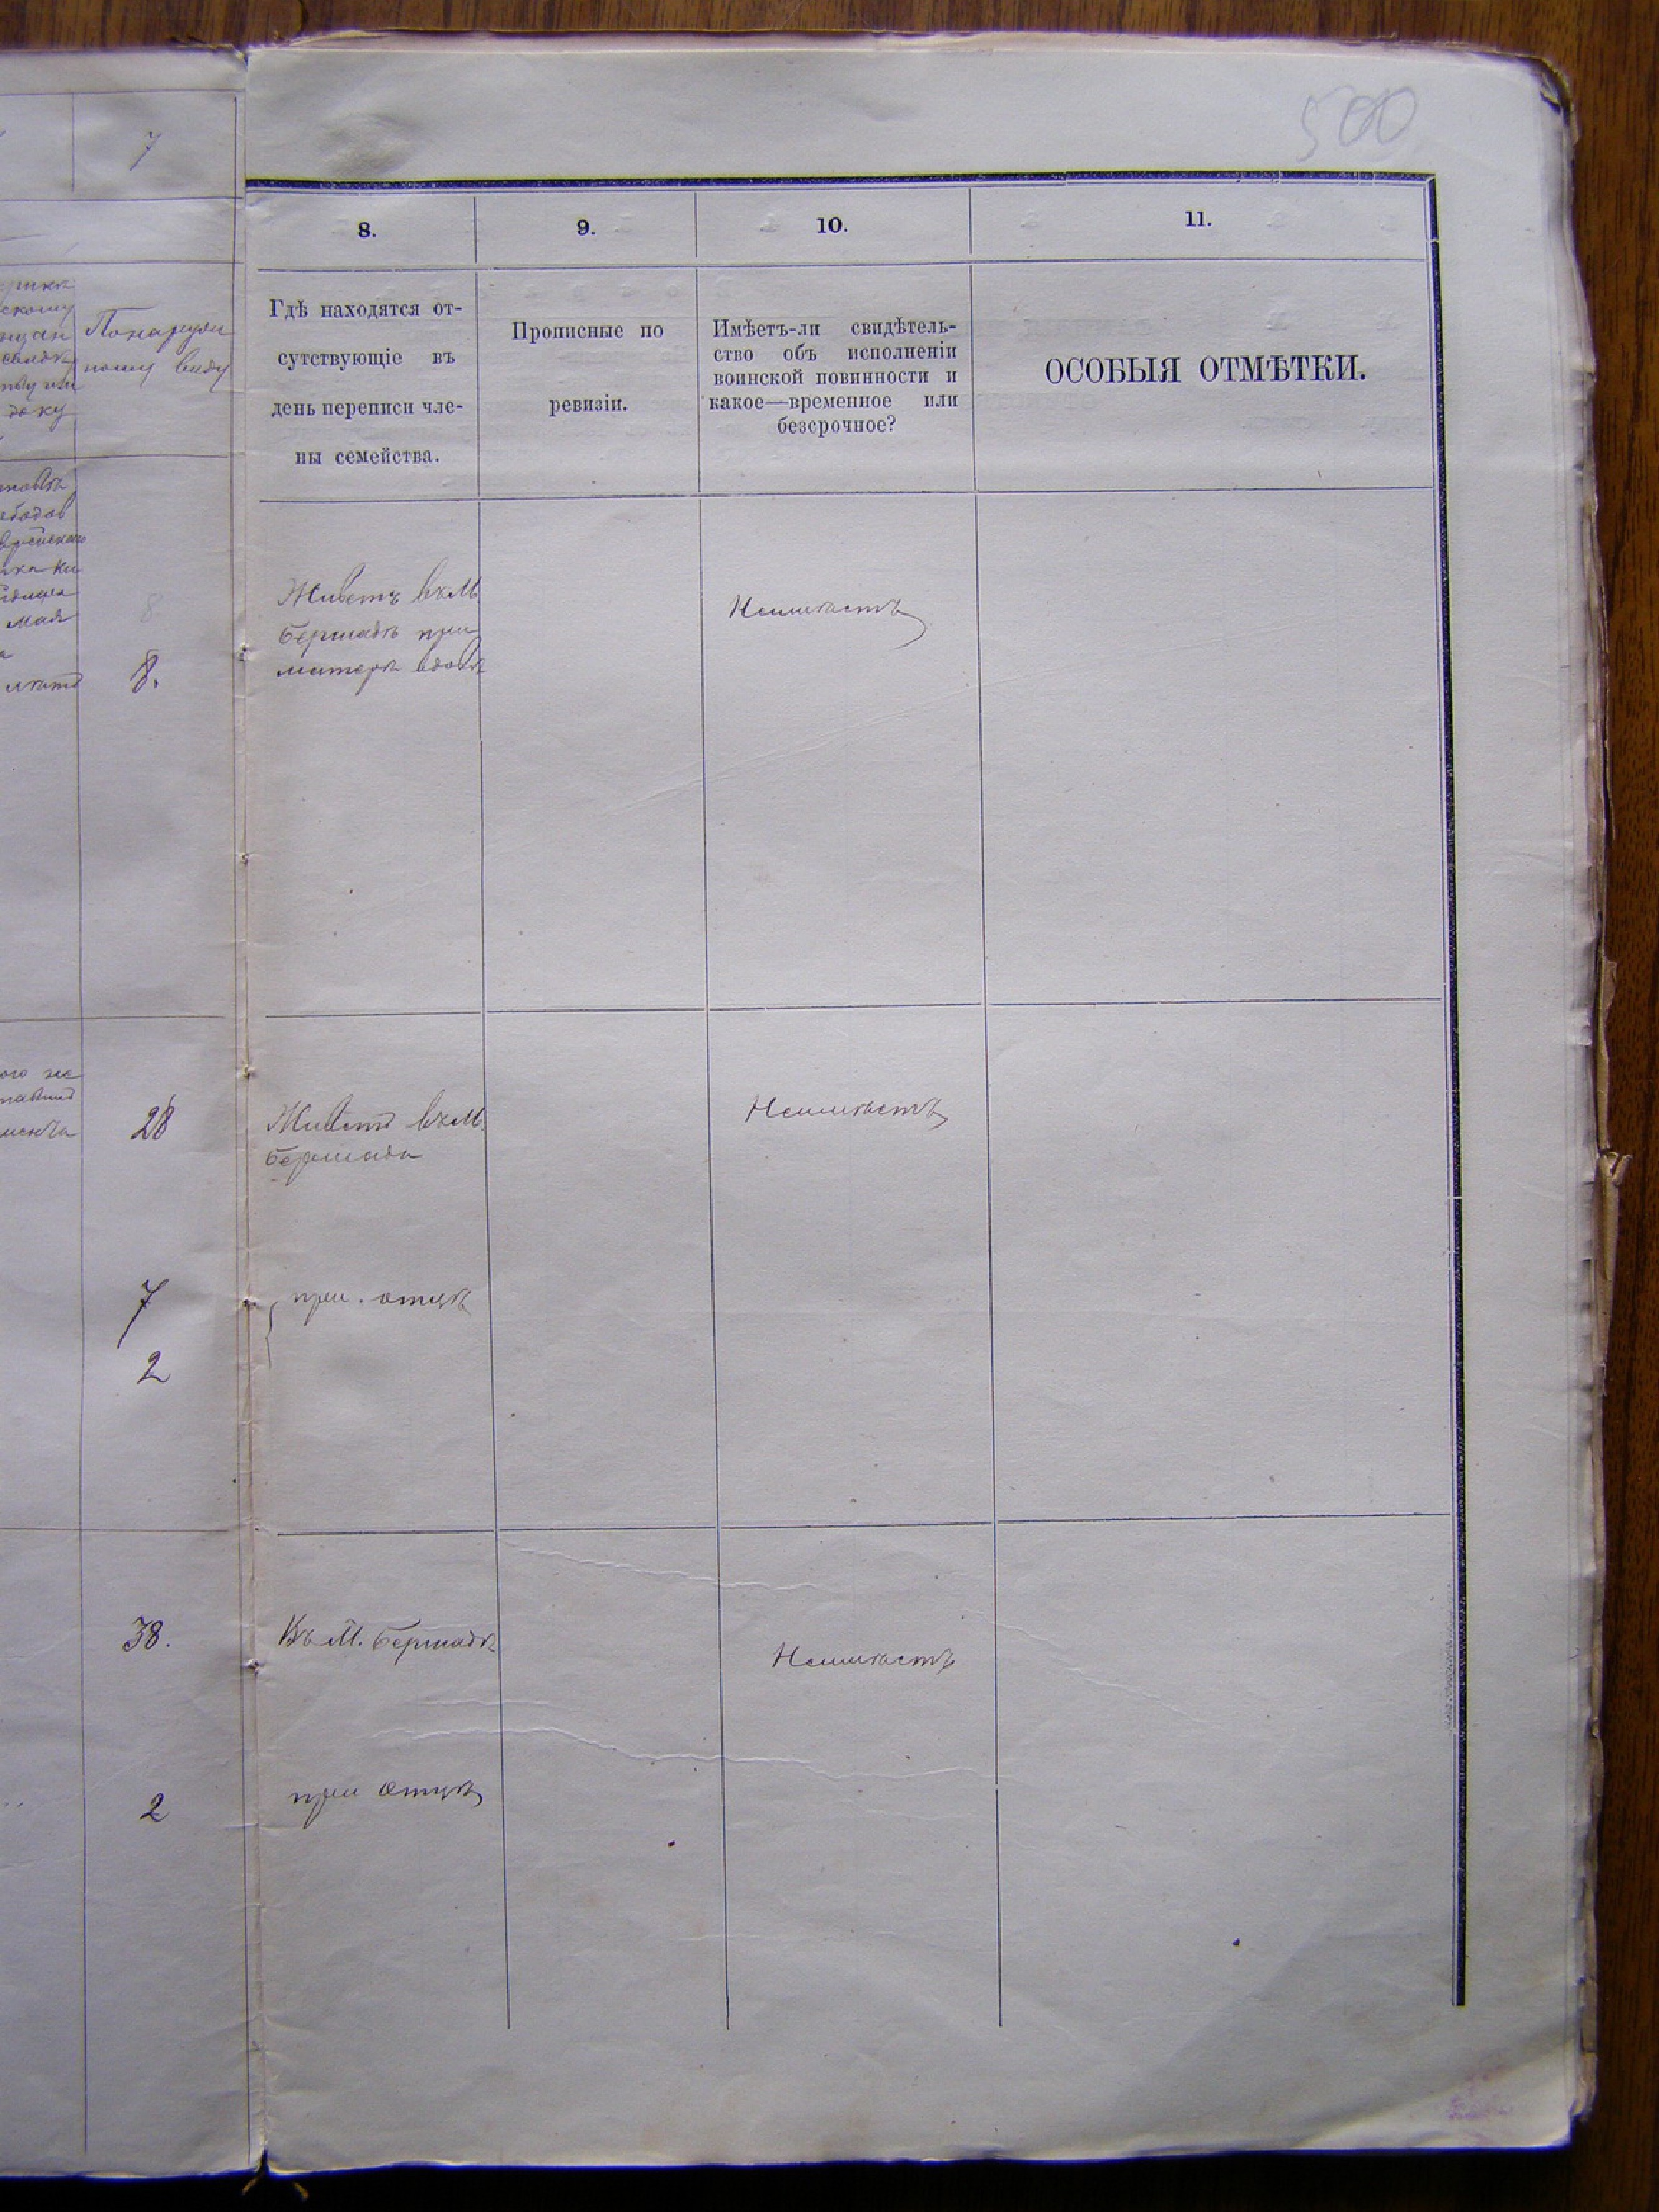 500
7
8.
9.
10.
11.
Гдѣ находятся от-
сутствующіе въ
день переписи чле-
ны семейства.
Прописные по
ревизіи.
Имѣетъ-ли свидѣтель-
ство объ исполненіи
воинской повинности и
какое—временное или
безсрочное?
ОСОБЫЯ ОТМѢТКИ.
По наруж
ному виду
8.
Живетъ въ М.
Бершадѣ при
матери вдовѣ
Неимѣетъ
28
Живетъ въ М.
Бершади
Неимѣетъ
7
при отцѣ
2
38.
Въ М. Бершадѣ
Неимѣетъ
2
при отцѣ